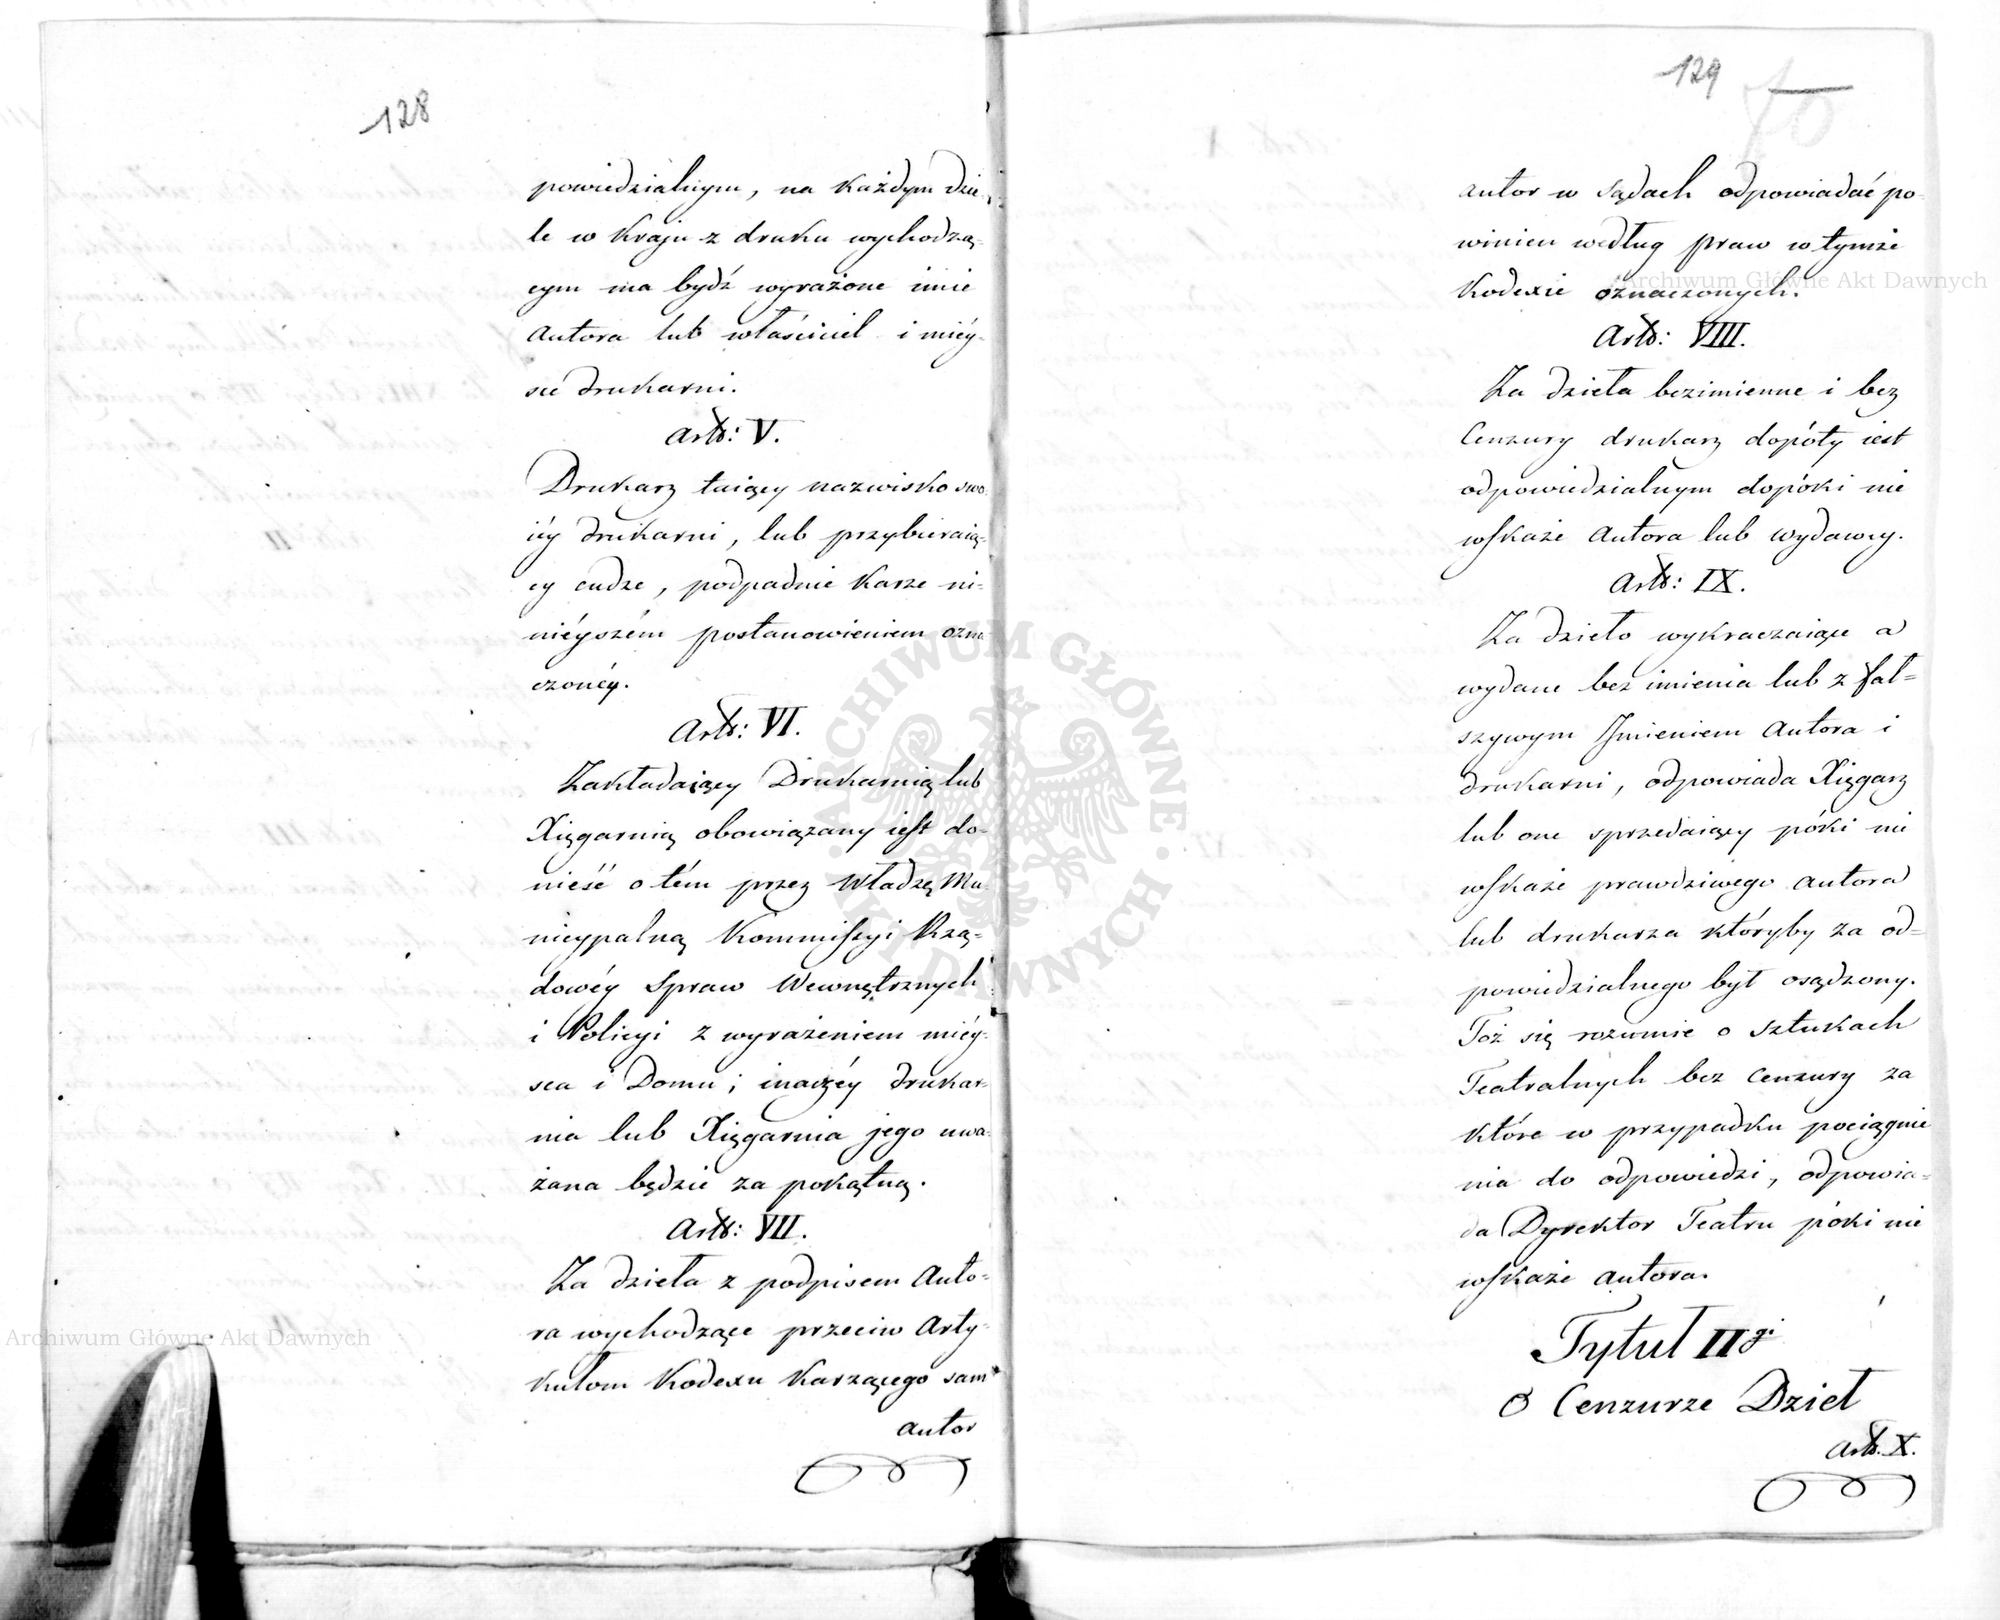 128
powiedzialnym, na każdym dzie-
le w kraju z druku wychodzą-
cym ma bydź wyrażone imie
autora lub właściciel i mićy-
sce drukarni.
Artł: V.
Drukarz taiący nazwisko swo-
ićy drukarni, lub przybieraią-
cy cudze, podpadnie karze ni-
nićyszém postanowieniem ozna
czonéy.
Artł: VI.
Zakładaiący Drukarnią lub
Xięgarnią obowiązany iest do-
nieść o tém przez Władzę Mu-
nicypalną Kommissyi Rzą-
dowéy Spraw Wewnętrznych
i Policyi z wyrażeniem mićy-
sca i Domu; inaczéy drukar-
nia lub Xięgarnia jego uwa-
żana będzie za pokątną.
Artł: VII.
Za dzieła z podpisem Auto-
ra wychodzące przeciw Arty-
kułom Kodexu Karzącego sam
autor
129
autor w Sądach odpowiadać po-
winien według praw w tymże
Kodexie oznaczonych.
Artł: VIII.
Za dzieła bezimienne i bez
Cenzury drukarz dopóty iest
odpowiedzialnym dopóki nie
wskaże Autora lub wydawcy.
Artł: IX.
Za dzieło wykraczaiące a
wydane bez imienia lub z fał=
szywym Imieniem Autora i
drukarni, odpowiada Xięgarz
lub one sprzedaiący póki nie
wskaże prawdziwego autora
lub drukarza któryby za od=
powiedzialnego był osądzony.
Toż się rozumie o Sztukach
Teatralnych bez Cenzury za
które w przypadku pociągnie
nia do odpowiedzi, odpowia-
da Dyrektor Teatru póki nie
wskaże autora.
Tytuł II gi
O Cenzurze Dzieł
Artł. X.
Archiwum Główne Akt Dawnych
Archiwum Główne Akt Dawnych
ARCHIWUM GŁÓWNE · AKT DAWNYCH ·